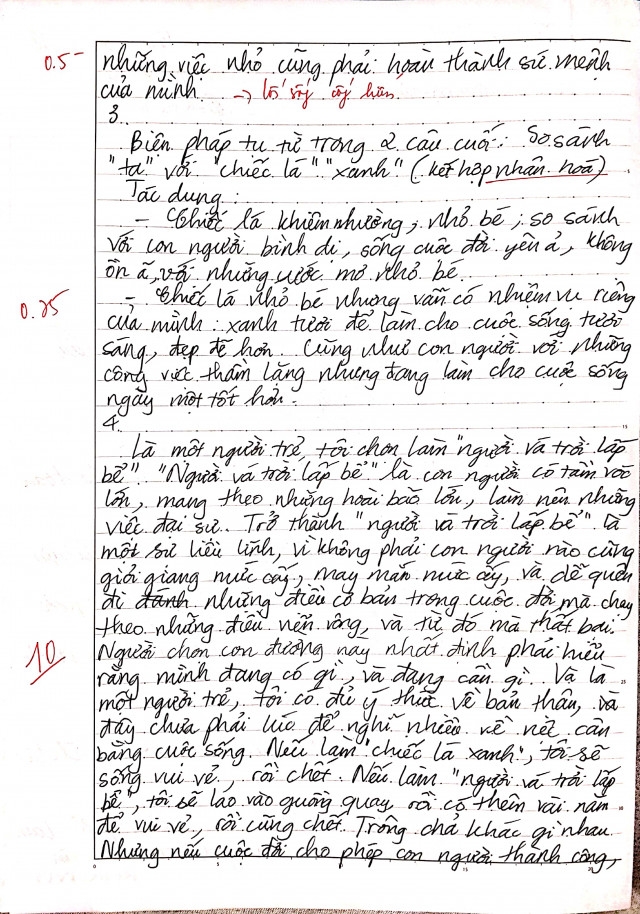 0.5 những việc nhỏ cũng phải hoàn thành sứ mệnh
của mình → lối sống cống hiến
3.
Biện pháp tu từ trong 2 câu cuối: So sánh
"ta" với "chiếc lá" "xanh" (kết hợp nhân hoá)
Tác dụng:
- Chiếc lá khiêm nhường, nhỏ bé; so sánh
với con người bình dị, sống cuộc đời yên ả, không
ồn ã, với những ước mơ nhỏ bé.
0.25 - Chiếc lá nhỏ bé nhưng vẫn có nhiệm vụ riêng
của mình: xanh tươi để làm cho cuộc sống tươi
sáng, đẹp đẽ hơn. Cũng như con người với những
công việc thầm lặng nhưng đang làm cho cuộc sống
ngày một tốt hơn.
4.
Là một người trẻ, tôi chọn làm "người vá trời lấp
bể". "Người vá trời lấp bể" là con người có tầm vóc
lớn, mang theo những hoài bão lớn, làm nên những
việc đại sự. Trở thành "người vá trời lấp bể" là
một sự liều lĩnh, vì không phải con người nào cũng
giỏi giang mức ấy, may mắn mức ấy, và dễ quên
đi đánh những điều cơ bản trong cuộc đời mà chạy
theo những điều viển vông, và từ đó mà thất bại.
10 Người chọn con đường này nhất định phải hiểu
rằng mình đang có gì, và đang cần gì. Và là
một người trẻ, tôi có đủ ý thức về bản thân, và
đây chưa phải lúc để nghĩ nhiều về nét cân
bằng cuộc sống. Nếu làm "chiếc lá xanh", tôi sẽ
sống vui vẻ, rồi chết. Nếu làm "người vá trời lấp
bể", tôi sẽ lao vào guồng quay rồi có thêm vài năm
để vui vẻ, rồi cũng chết. Trông chả khác gì nhau.
Nhưng nếu cuộc đời cho phép con người thành công,